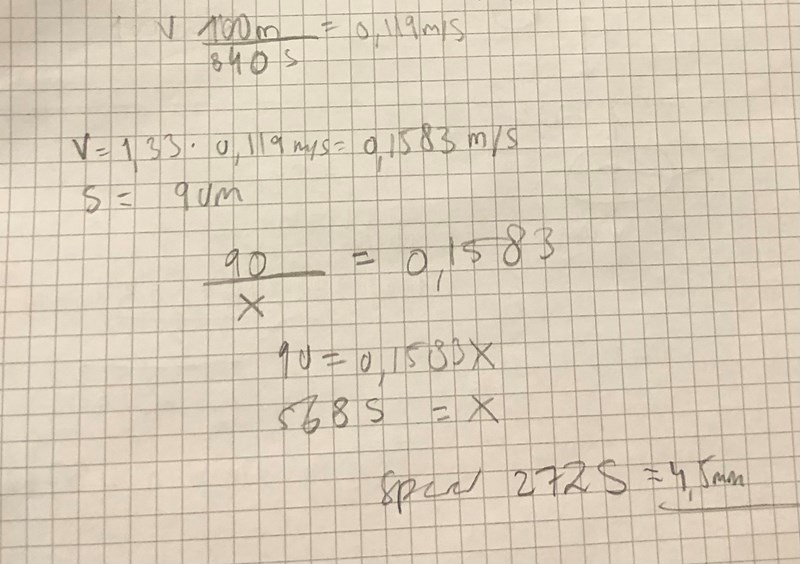 V 100m = 0,119m/s
840 s
V = 1,33 · 0,119 m/s = 0,1583 m/s
s = 90m
90 = 0,1583
x
90 = 0,1583x
568 s = x
272 s = 4,5min